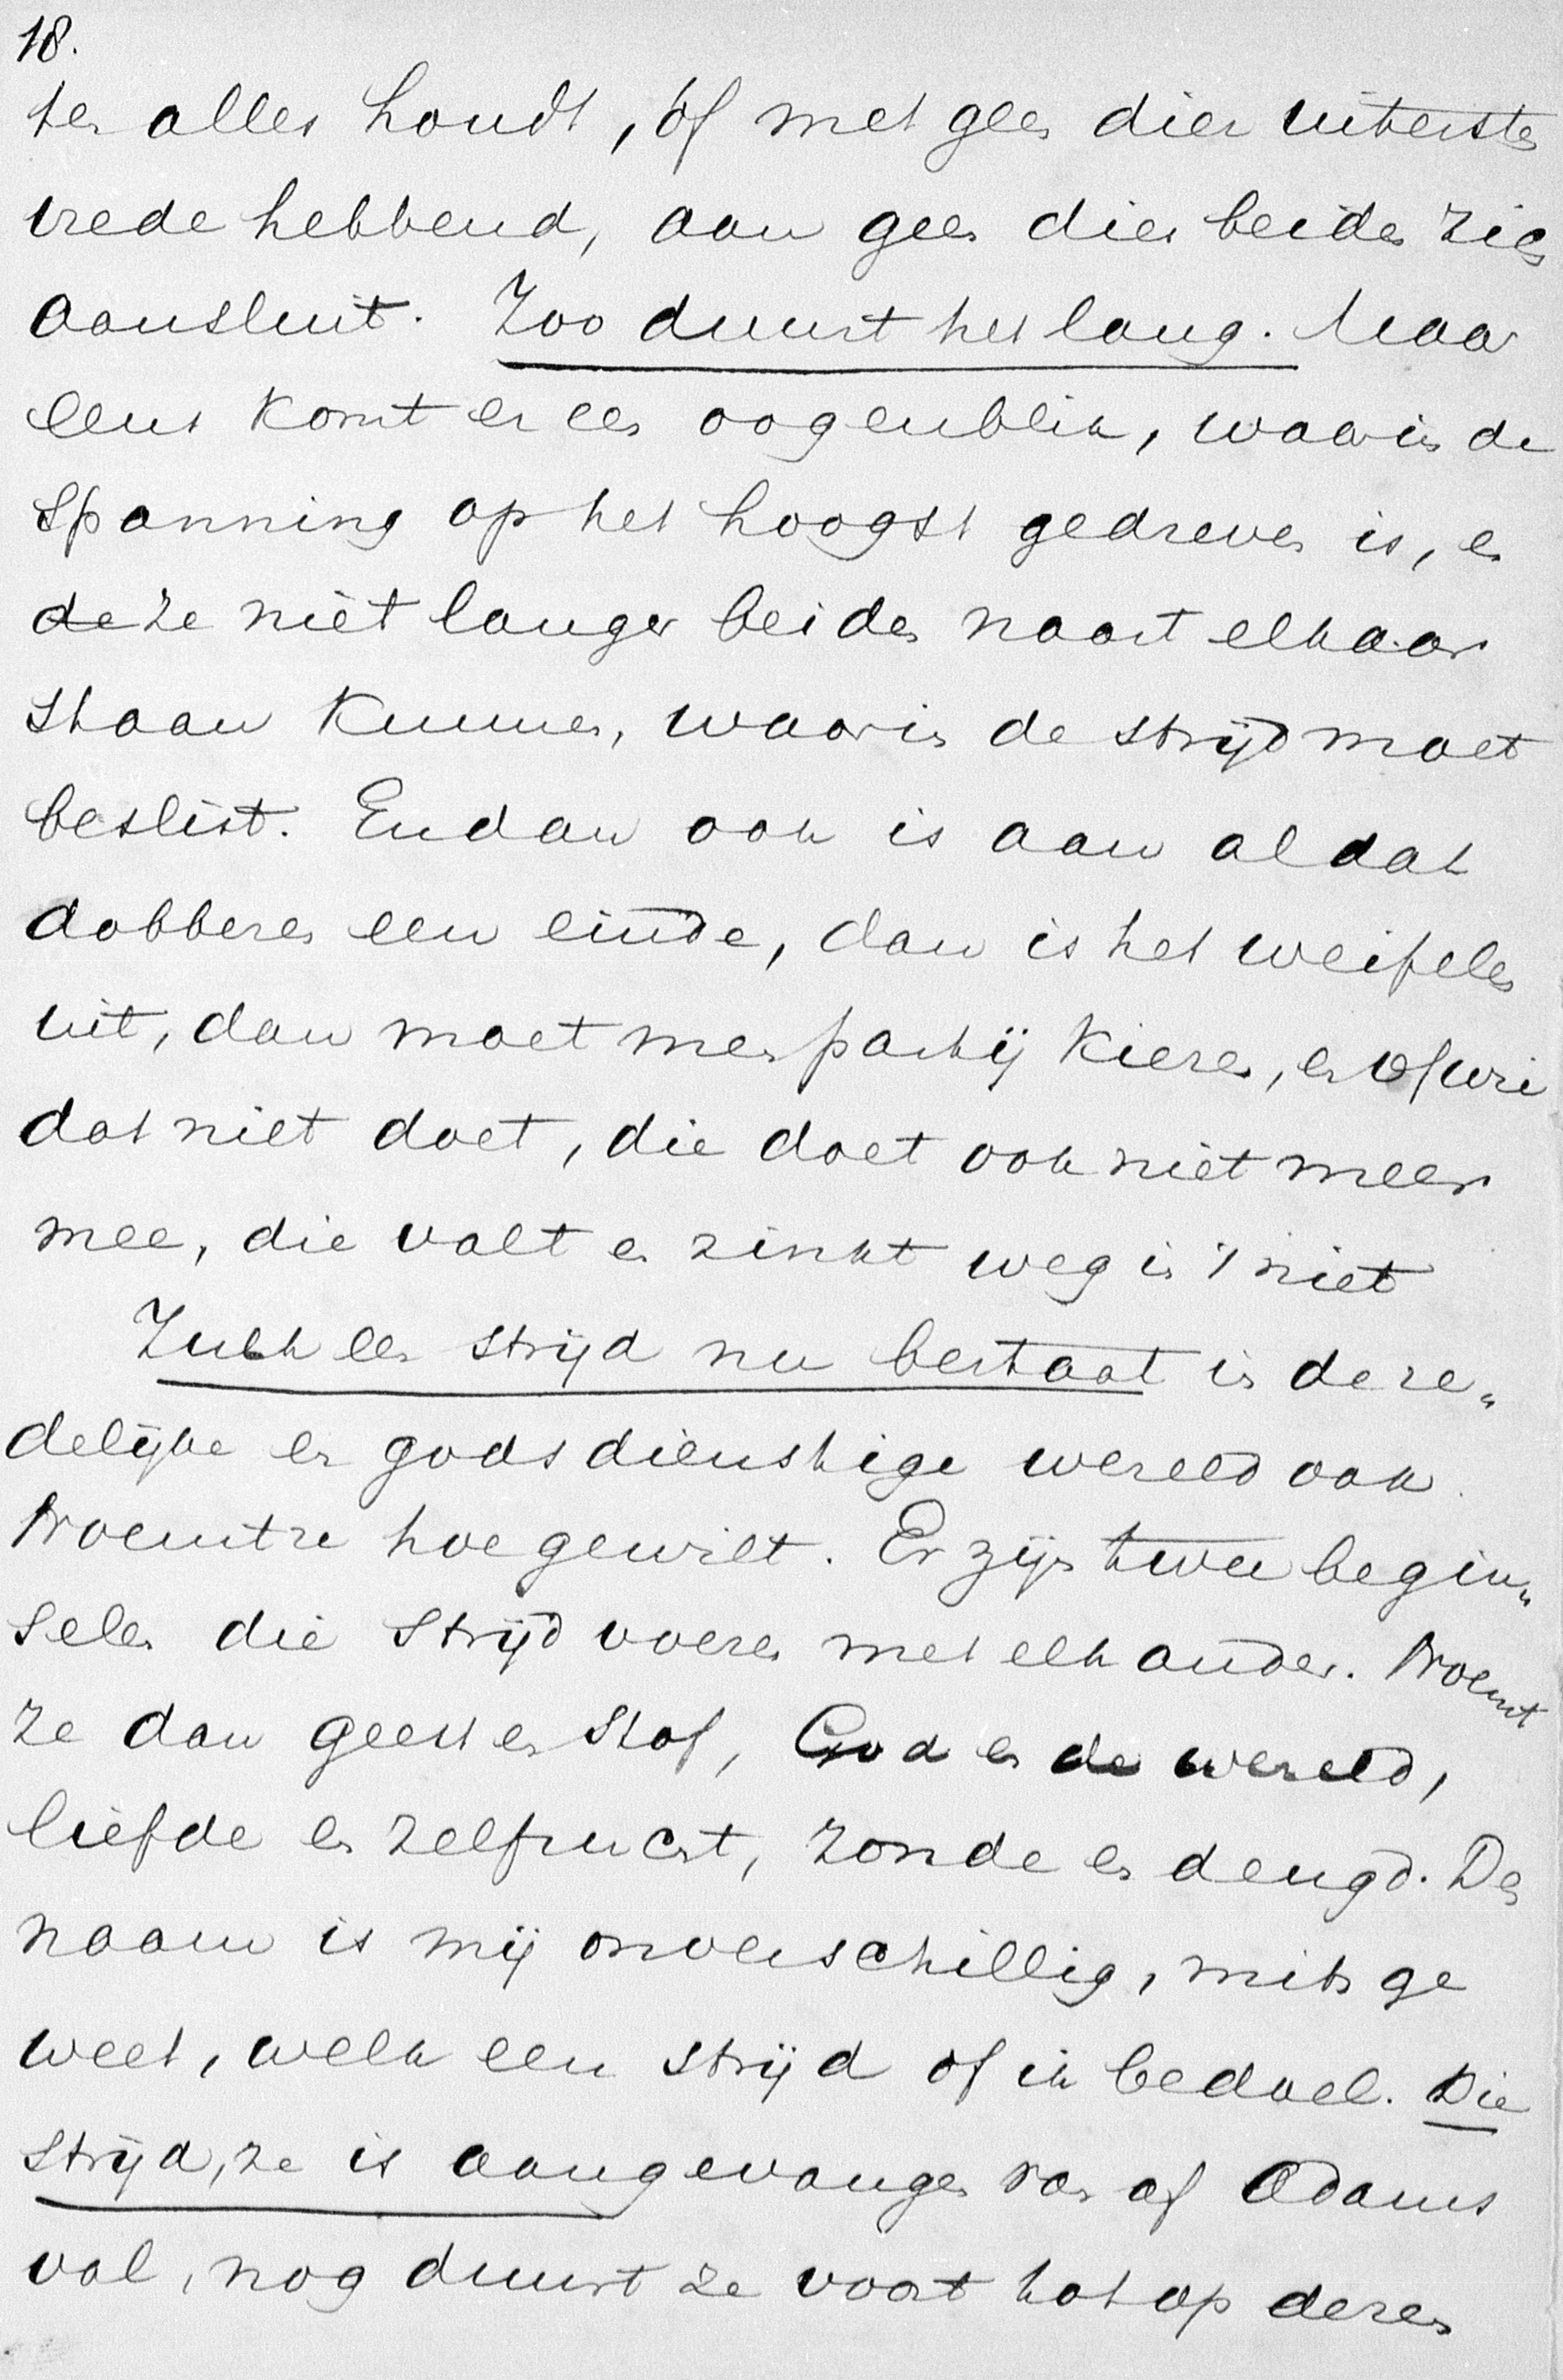 18.
ten alles houdt, óf met geen dier uitersten
vrede hebbend, aan geen dier beiden zich
aansluit. Zoo duurt het lang. Maar
eens komt er een oogenblik, waarin de
spanning op het hoogst gedreven is, en
deze niet langer beiden naast elkaar
staan kunnen, waarin de strijd moet
beslist. En dan ook is aan al dat
dobberen een einde, dan is het weifelen
uit, dan moet men partij kiezen, en of wie
dat niet doet, die doet ook niet meer
mee, die valt en zinkt weg in 't niet
Zulk een strijd nu bestaat in de re„
delijke en godsdienstige wereld ook.
Noemt ze hoe ge wilt. Er zijn twee begin„
selen die strijd voeren met elkander. Noemt
ze dan geest en stof, God en de wereld,
liefde en zelfzucht, zonde en deugd. De
naam is mij onverschillig, mits ge
weet, welk een strijd of ik bedoel. Die
strijd, ze is aangevangen van af Adams
val, nog duurt ze voort tot op dezen